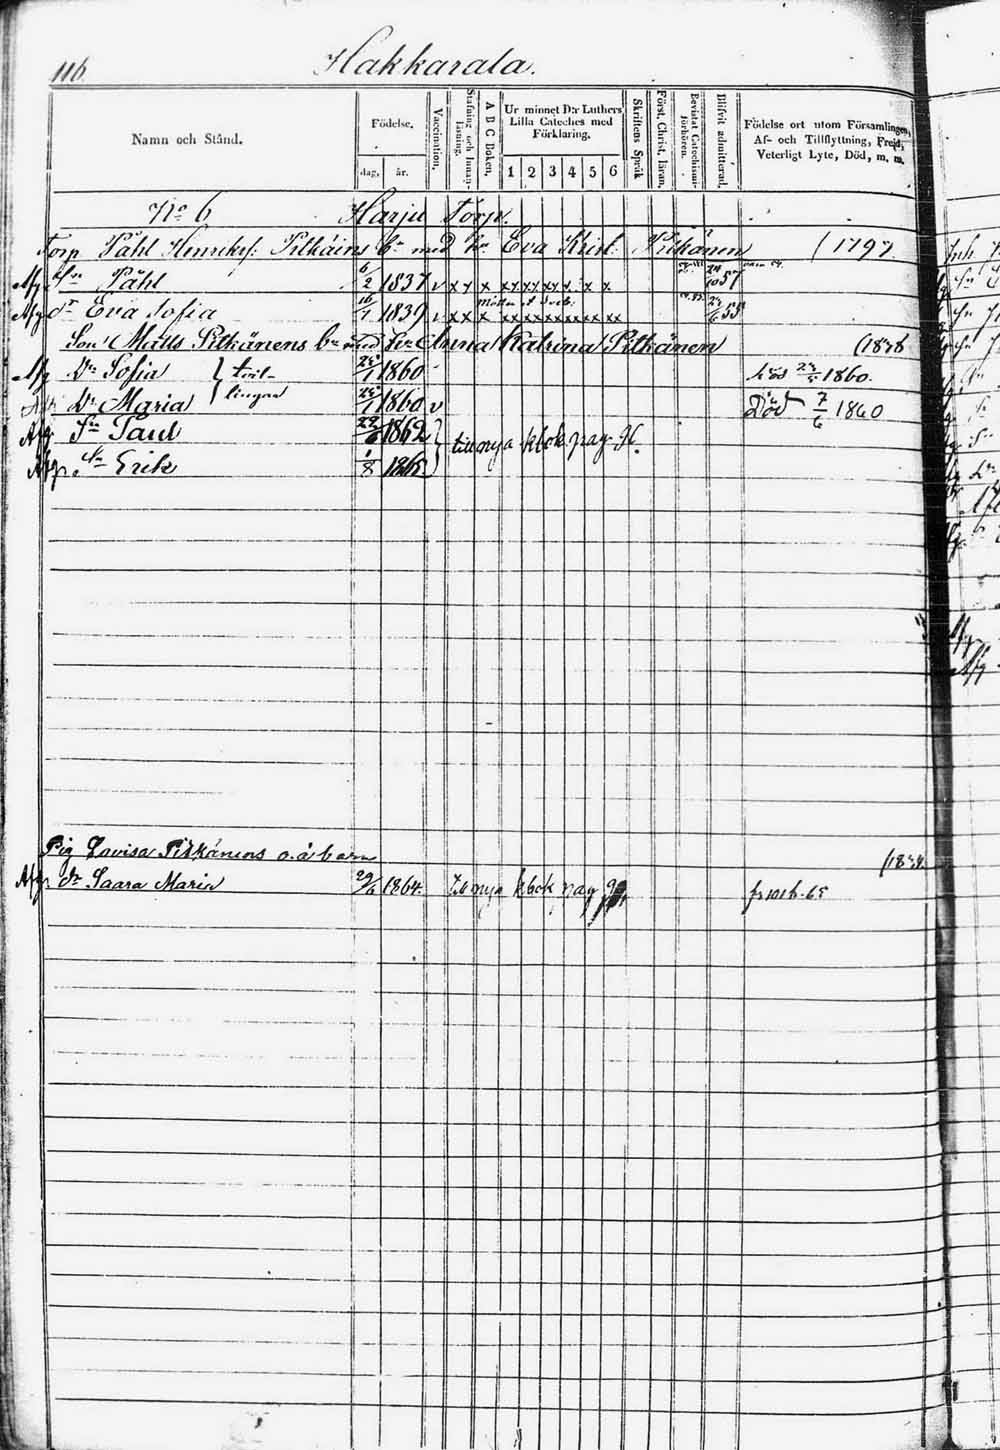 116.
Hakkarala.
Namn och Stånd.
Födelse.
dag, år.
Vaccination.
Stafning och Innanläsning.
A B C Boken.
Ur minnet D:r Luthers Lilla Cateches med Förklaring.
1 2 3 4 5 6
Skriftens Språk
Först. Christ. läran.
Bevistat Catechismiförhören.
Blifvit admitterad.
Födelse ort utom Församlingen, Af- och Tillflyttning, Frejd, Veterligt Lyte, Död, m. m.
No 6 Harju Torp.
Torp Påhl Henrikss: Pitkäins b:n med h:u Eva Krist: Pitkänen (1797
Afg Sn Påhl 6/2 1837 v x x x x x x x x x x 57
Afg dr Eva Sofia 16/1 1839 v x x x x x x x x x x x x x 55
Son Matts Pitkänens b:n med h:u Anna Katrina Pitkänen (1838
Afg Dr Sofia } tvil- 1860 1860.
Dr Maria } lingar 1860 v Död 7/6 1860
Afg. Sn Paul 29/6 1862 } till nya kbok pag. 96.
Afg. Sn Erik 1/8 1865.
Pig Lovisa Pitkänens o.ä barn (1834
Afg. dr Saara Maria 29/6 1864. till nya kbok pag fr 101 b. 65